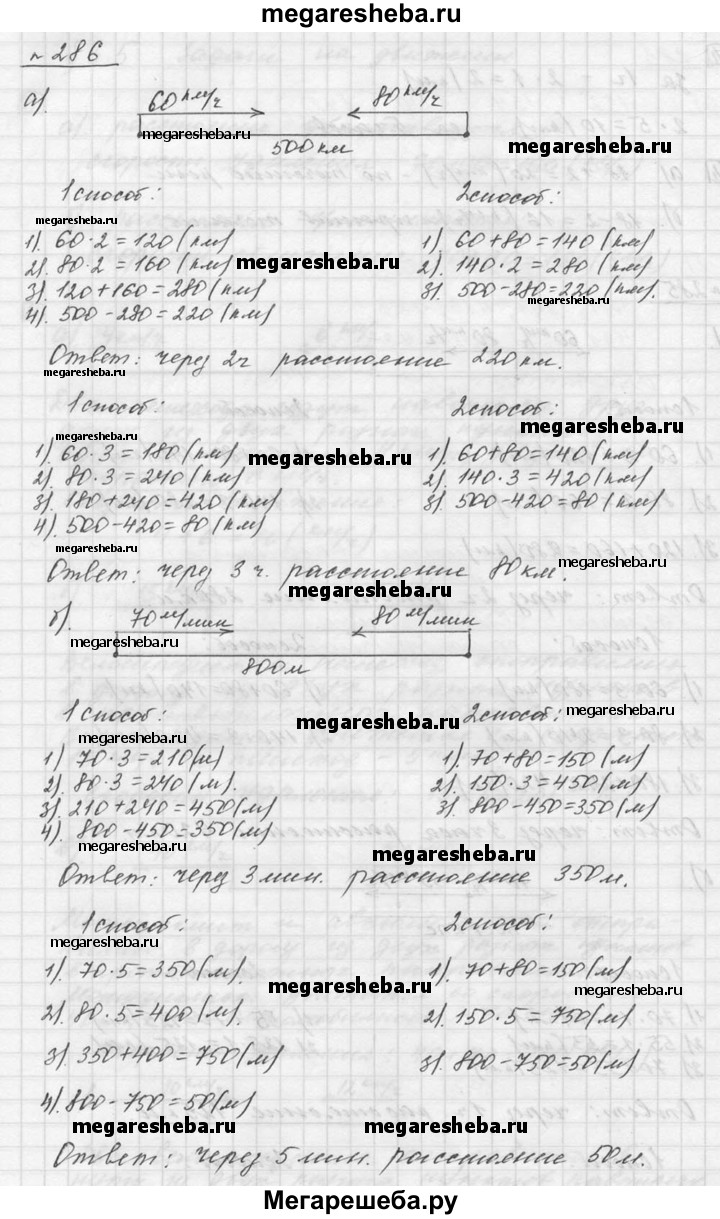 megaresheba.ru
№ 286
а). 60 км/ч 80 км/ч
megaresheba.ru
500 км megaresheba.ru
1 способ: 2 способ:
megaresheba.ru
1). 60·2=120(км) 1) 60+80=140(км)
2). 80·2=160(км) megaresheba.ru 2). 140·2=280(км)
3) 120+160=280(км) 3). 500-280=220(км).
megaresheba.ru
4). 500-280=220(км)
Ответ: через 2ч расстояние 220км.
megaresheba.ru
1 способ: 2 способ:
megaresheba.ru
megaresheba.ru
1) 60·3=180(км) 1). 60+80=140(км)
2) 80·3=240(км) megaresheba.ru 2). 140·3=420(км)
3) 180+240=420(км) 3). 500-420=80(км)
4). 500-420=80(км)
megaresheba.ru
Ответ: через 3 ч. расстояние 80км.
megaresheba.ru
megaresheba.ru
б). 70 м/мин 80 м/мин
megaresheba.ru
800м
1 способ: 2 способ:
megaresheba.ru
megaresheba.ru
1) 70·3=210(м) 1). 70+80=150(м)
2). 80·3=240(м). 2). 150·3=450(м)
3) 210+240=450(м) 3). 800-450=350(м)
4). 800-450=350(м)
megaresheba.ru
megaresheba.ru
Ответ: через 3 мин. расстояние 350м.
1 способ: 2 способ:
megaresheba.ru
1). 70·5=350(м). 1). 70+80=150(м)
megaresheba.ru
megaresheba.ru
2). 80·5=400(м). 2). 150·5=750(м)
3). 350+400=750(м) 3). 800-750=50(м)
4). 800-750=50(м)
megaresheba.ru megaresheba.ru
Ответ: через 5 мин. расстояние 50м.
Мегарешеба.ру